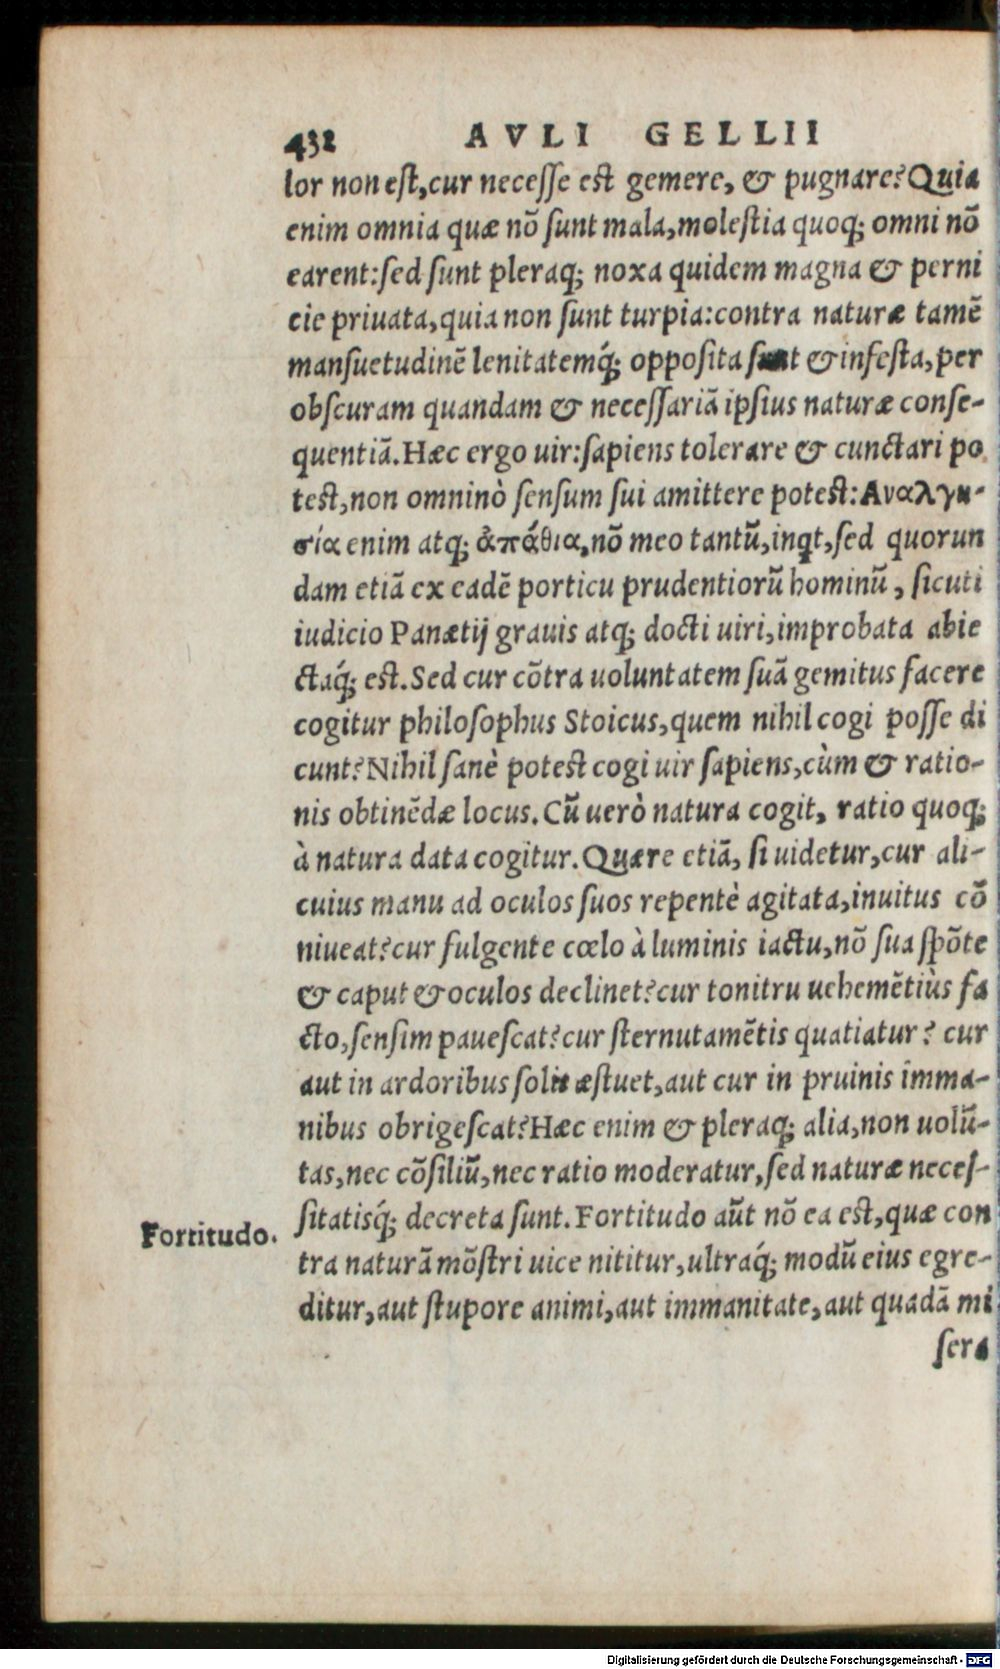 432 AVLI GELLII
lor non est, cur necesse est gemere, & pugnare? Quia
enim omnia quæ nō sunt mala, molestia quoq; omni nō
carent: sed sunt pleraq; noxa quidem magna & perni
cie priuata, quia non sunt turpia: contra naturæ tamē
mansuetudinē lenitatemq́; opposita sunt & infesta, per
obscuram quandam & necessariā ipsius naturæ conse-
quentiā. Hæc ergo uir: sapiens tolerare & cunctari po
test, non omninò sensum sui amittere potest: Αναλγη-
σία enim atq; ἀπάθια, nō meo tantū, inqt, sed quorun
dam etiā ex eadē porticu prudentiorū hominū, sicuti
iudicio Panætij grauis atq; docti uiri, improbata abie
ctaq́; est. Sed cur cōtra uoluntatem suā gemitus facere
cogitur philosophus Stoicus, quem nihil cogi posse di
cunt? Nihil sanè potest cogi uir sapiens, cùm & ratio-
nis obtinēdæ locus. Cū uerò natura cogit, ratio quoq;
à natura data cogitur. Quære etiā, si uidetur, cur ali-
cuius manu ad oculos suos repentè agitata, inuitus cō
niueat? cur fulgente cœlo à luminis iactu, nō sua spōte
& caput & oculos declinet? cur tonitru uehemētiùs fa
cto, sensim pauescat? cur sternutamētis quatiatur? cur
aut in ardoribus solis æstuet, aut cur in pruinis imma-
nibus obrigescat? Hæc enim & pleraq; alia, non uolū-
tas, nec cōsiliū, nec ratio moderatur, sed naturæ neces-
sitatisq́; decreta sunt. Fortitudo aūt nō ea est, quæ con
Fortitudo.
tra naturā mōstri uice nititur, ultraq́; modū eius egre-
ditur, aut stupore animi, aut immanitate, aut quadā mi
sera
Digitalisierung gefördert durch die Deutsche Forschungsgemeinschaft - DFG